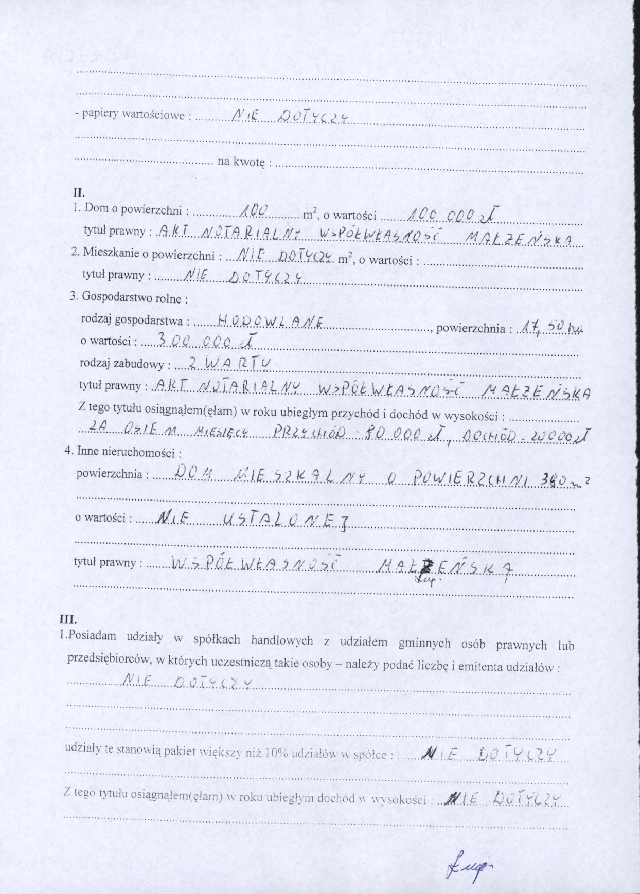 - papiery wartościowe : NIE DOTYCZY
na kwotę :
II.
1. Dom o powierzchni : 100 m², o wartości 100 000 zł
tytuł prawny : AKT NOTARIALNY WSPÓŁWŁASNOŚĆ MAŁŻEŃSKA
2. Mieszkanie o powierzchni : NIE DOTYCZY m², o wartości :
tytuł prawny : NIE DOTYCZY
3. Gospodarstwo rolne :
rodzaj gospodarstwa : HODOWLANE , powierzchnia : 17,50 ha
o wartości : 300 000 zł
rodzaj zabudowy : ZWARTU
tytuł prawny : AKT NOTARIALNY WSPÓŁWŁASNOŚĆ MAŁŻEŃSKA
Z tego tytułu osiągnąłem(ęłam) w roku ubiegłym przychód i dochód w wysokości :
ZA OSIEM MIESIĘCY PRZYCHÓD - 80 000 zł, DOCHÓD - 20000 zł
4. Inne nieruchomości :
powierzchnia : DOM MIESZKALNY O POWIERZCHNI m²
o wartości : NIE USTALONEJ
tytuł prawny : WSPÓŁWŁASNOŚĆ MAŁŻEŃSKA
III.
1.Posiadam udziały w spółkach handlowych z udziałem gminnych osób prawnych lub
przedsiębiorców, w których uczestniczą takie osoby – należy podać liczbę i emitenta udziałów :
NIE DOTYCZY
udziały te stanowią pakiet większy niż 10% udziałów w spółce : NIE DOTYCZY
Z tego tytułu osiągnąłem(ęłam) w roku ubiegłym dochód w wysokości : NIE DOTYCZY